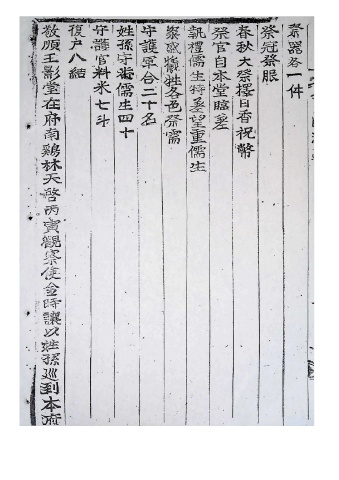 祭器各一件
祭冠祭服
春秋大祭擇日香祝幣
祭官自本堂臨差
執禮儒生特差望重儒生
粢盛犧牲各色祭需
守護軍合二十名
姓孫守護儒生四十
守護官料米七斗
復戶八結
敬順王影堂在府南鷄林天啓丙寅觀察使金時讓以姓孫巡到本府